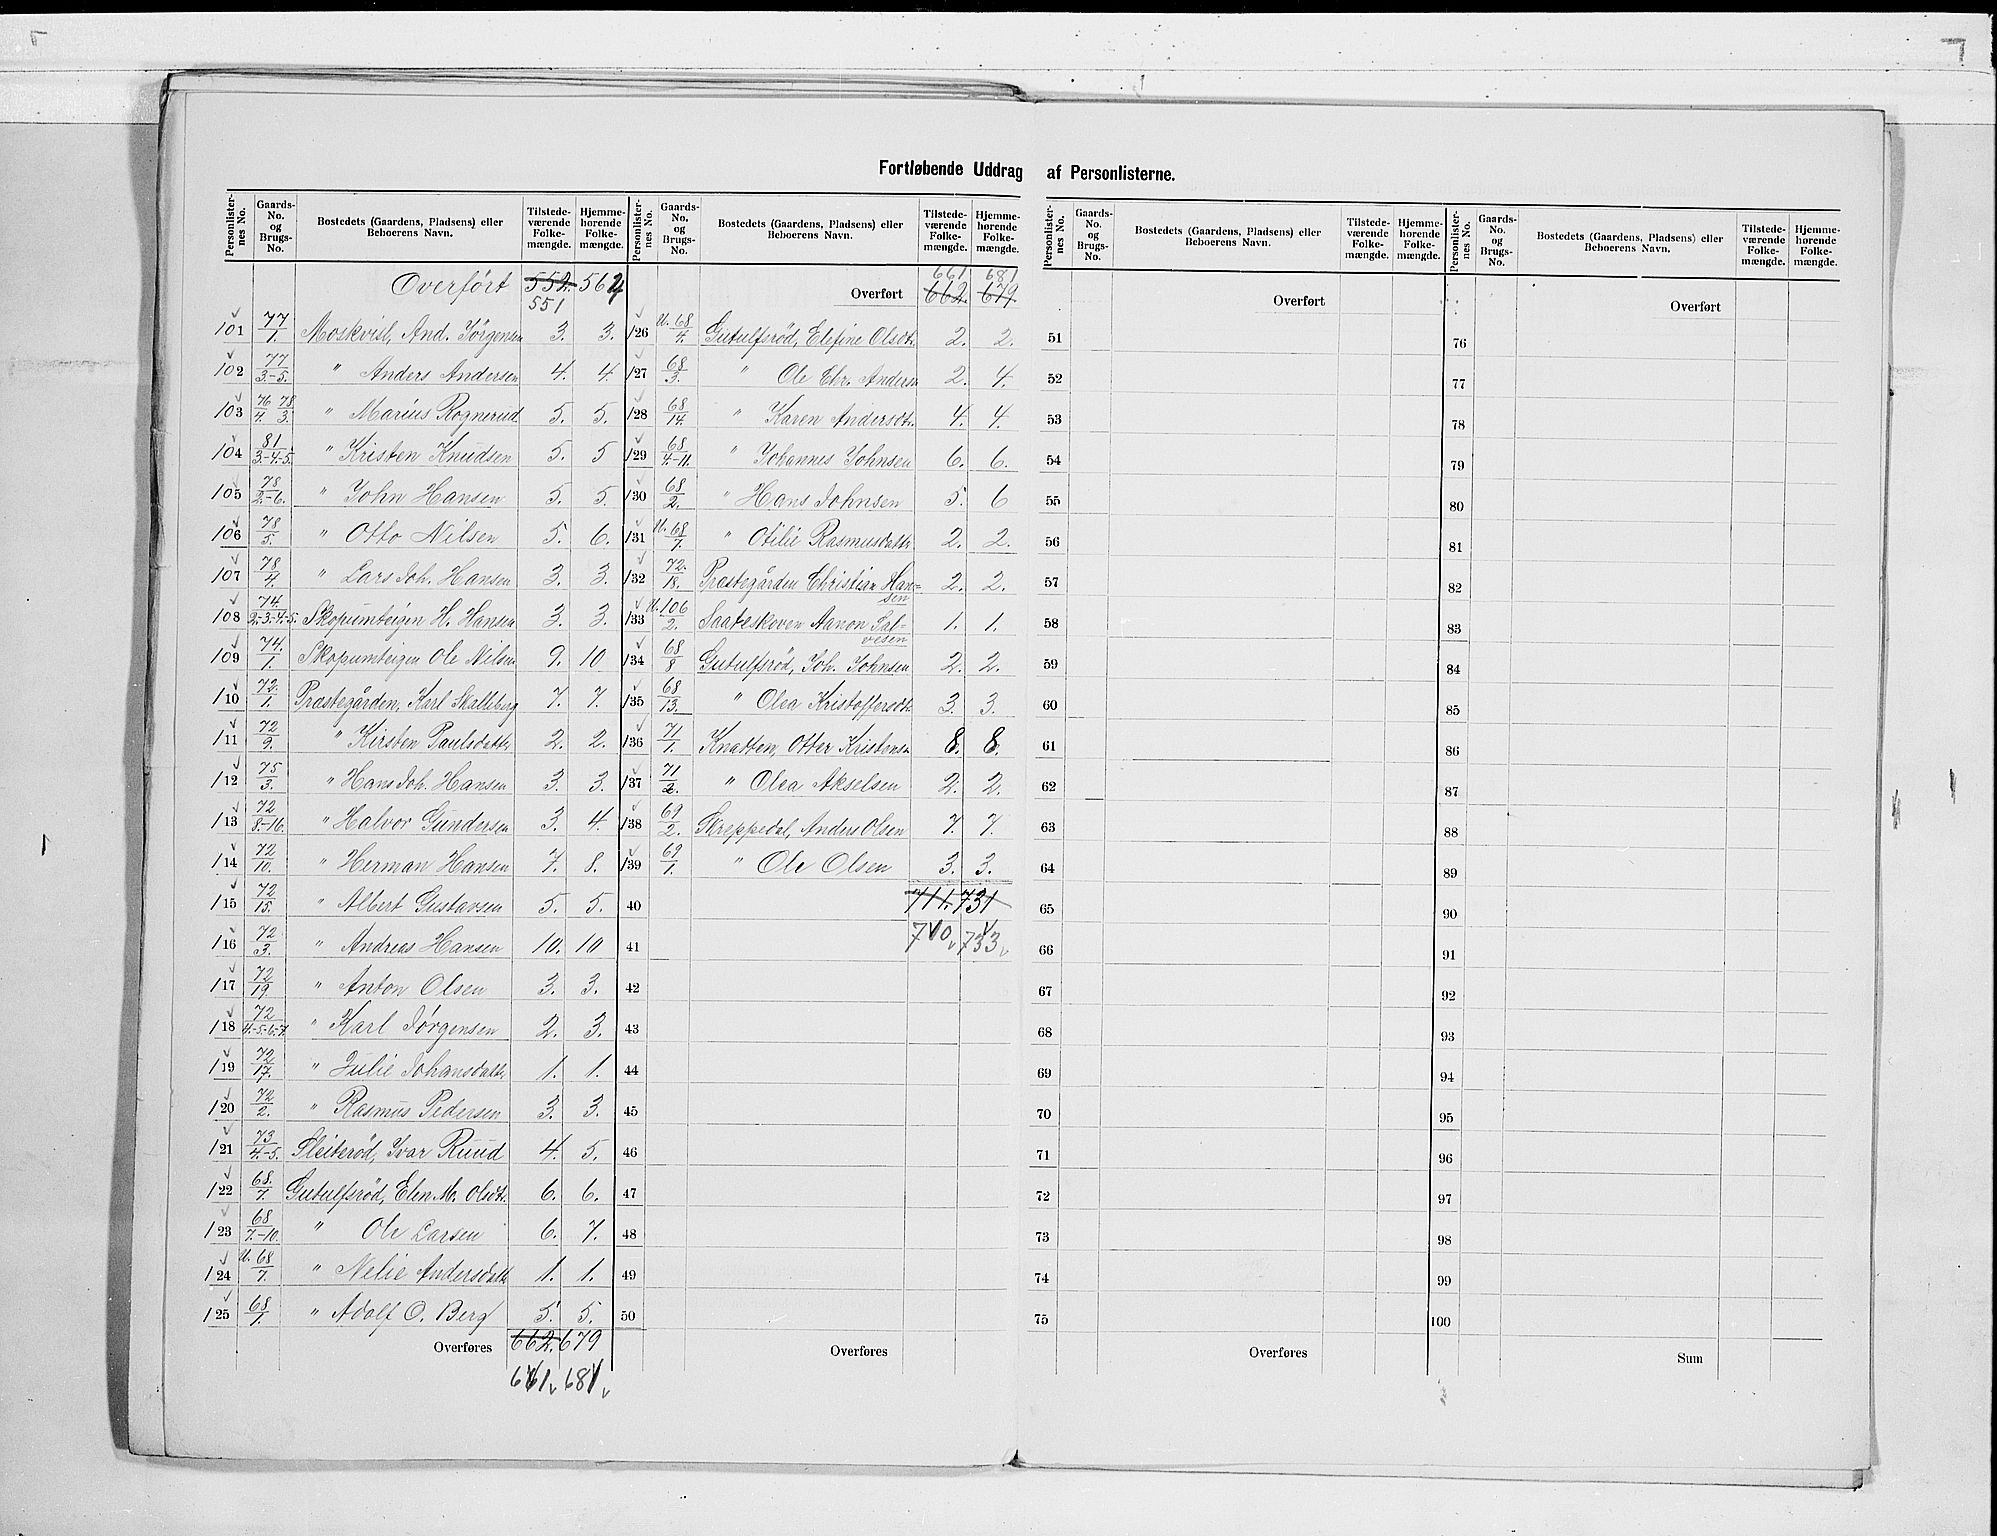 Fortløbende Uddrag af Personlisterne.
Personlisternes No. Gaards-No. og Brugs-No. Bostedets (Gaardens, Pladsens) eller Beboerens Navn. Tilstedeværende Folkemængde. Hjemmehørende Folkemængde.
Overført 552. 564
551
101 77/1. Moskvisl, And. Jörgensen 3. 3.
102 77/3.-5. " Anders Andersen 4. 4.
103 76/4. 78/3. " Marius Rognerud 5. 5.
104 81/3.-4.-5. " Kristen Knudsen 5. 5
105 78/2.-6. " John Hansen 5. 5.
106 78/5. " Otto Nilsen 5. 6.
107 78/4. " Lars Joh. Hansen 3. 3.
108 74./2.-3.-4.-5. Skopumteigen H. Hansen 3. 3.
109 74./1. Skopumteigen Ole Nilsen 9. 10.
110 72./1. Præstegården, Karl Skalleberg 7. 7.
111 72/9. " Kirsten Paulsdatt. 2. 2.
112 75/3. " Hans Joh. Hansen 3. 3.
113 72/8.-16. " Halvor Gundersen 3. 4.
114 72/10. " Herman Hansen 7. 8.
115 72/15. " Albert Gustavsen 5. 5.
116 72/3. " Andreas Hansen 10. 10
117 72/19. " Anton Olsen 3. 3.
118 72/4.-5.-6.-7. " Karl Jörgensen 2. 3.
119 72/17. " Julie Johansdatt. 1. 1.
120 72/2. " Rasmus Pedersen 3. 3.
121 73/4.-5. Sleiteröd, Ivar Ruud 4. 5.
122 68./7. Gutulfsröd, Elen M. Olsdt. 6. 6.
123 68/7.-10. " Ole Larsen 6. 7.
124 U. 68/7. " Nelie Andersdatt. 1. 1.
125 68/1. " Adolf O. Berg 5. 5.
Overføres 662. 679
661 681
Personlisternes No. Gaards-No. og Brugs-No. Bostedets (Gaardens, Pladsens) eller Beboerens Navn. Tilstedeværende Folkemængde. Hjemmehørende Folkemængde.
661 681
Overført 662. 679.
126 U. 68/4. Gutulfsröd, Elefine Olsdt. 2. 2.
127 68/3. " Ole Chr. Andersn 2. 4.
128 68/14. " Karen Andersdt. 4. 4.
129 68/4.-11. " Johannes Johnsen 6. 6.
130 68/2. " Hans Johnsen 5. 6
131 U. 68/7. " Otilie Rasmusdatt. 2. 2.
132 72./18. Præstegården Christian Hansen 2. 2.
133 U. 106/2. Saateskoven Aanon Salvesen 1. 1.
134 68/8 Gutulfsröd, Joh. Johnsen 2. 2.
135 68/13. " Olea Kristoffersdt. 3. 3.
136 71/1. Knatten, Otter Kristensn 8. 8.
137 71/2. " Olea Akselsen 2. 2.
138 69/2. Skreppedal, Anders Olsen 7. 7.
139 69/1. " Ole Olsen 3. 3.
40 711. 731
41 710 733
42
43
44
45
46
47
48
49
50
Overføres
Personlisternes No. Gaards-No. og Brugs-No. Bostedets (Gaardens, Pladsens) eller Beboerens Navn. Tilstedeværende Folkemængde. Hjemmehørende Folkemængde.
Overført
51
52
53
54
55
56
57
58
59
60
61
62
63
64
65
66
67
68
69
70
71
72
73
74
75
Overføres
Personlisternes No. Gaards-No. og Brugs-No. Bostedets (Gaardens, Pladsens) eller Beboerens Navn. Tilstedeværende Folkemængde. Hjemmehørende Folkemængde.
Overført
76
77
78
79
80
81
82
83
84
85
86
87
88
89
90
91
92
93
94
95
96
97
98
99
100
Sum